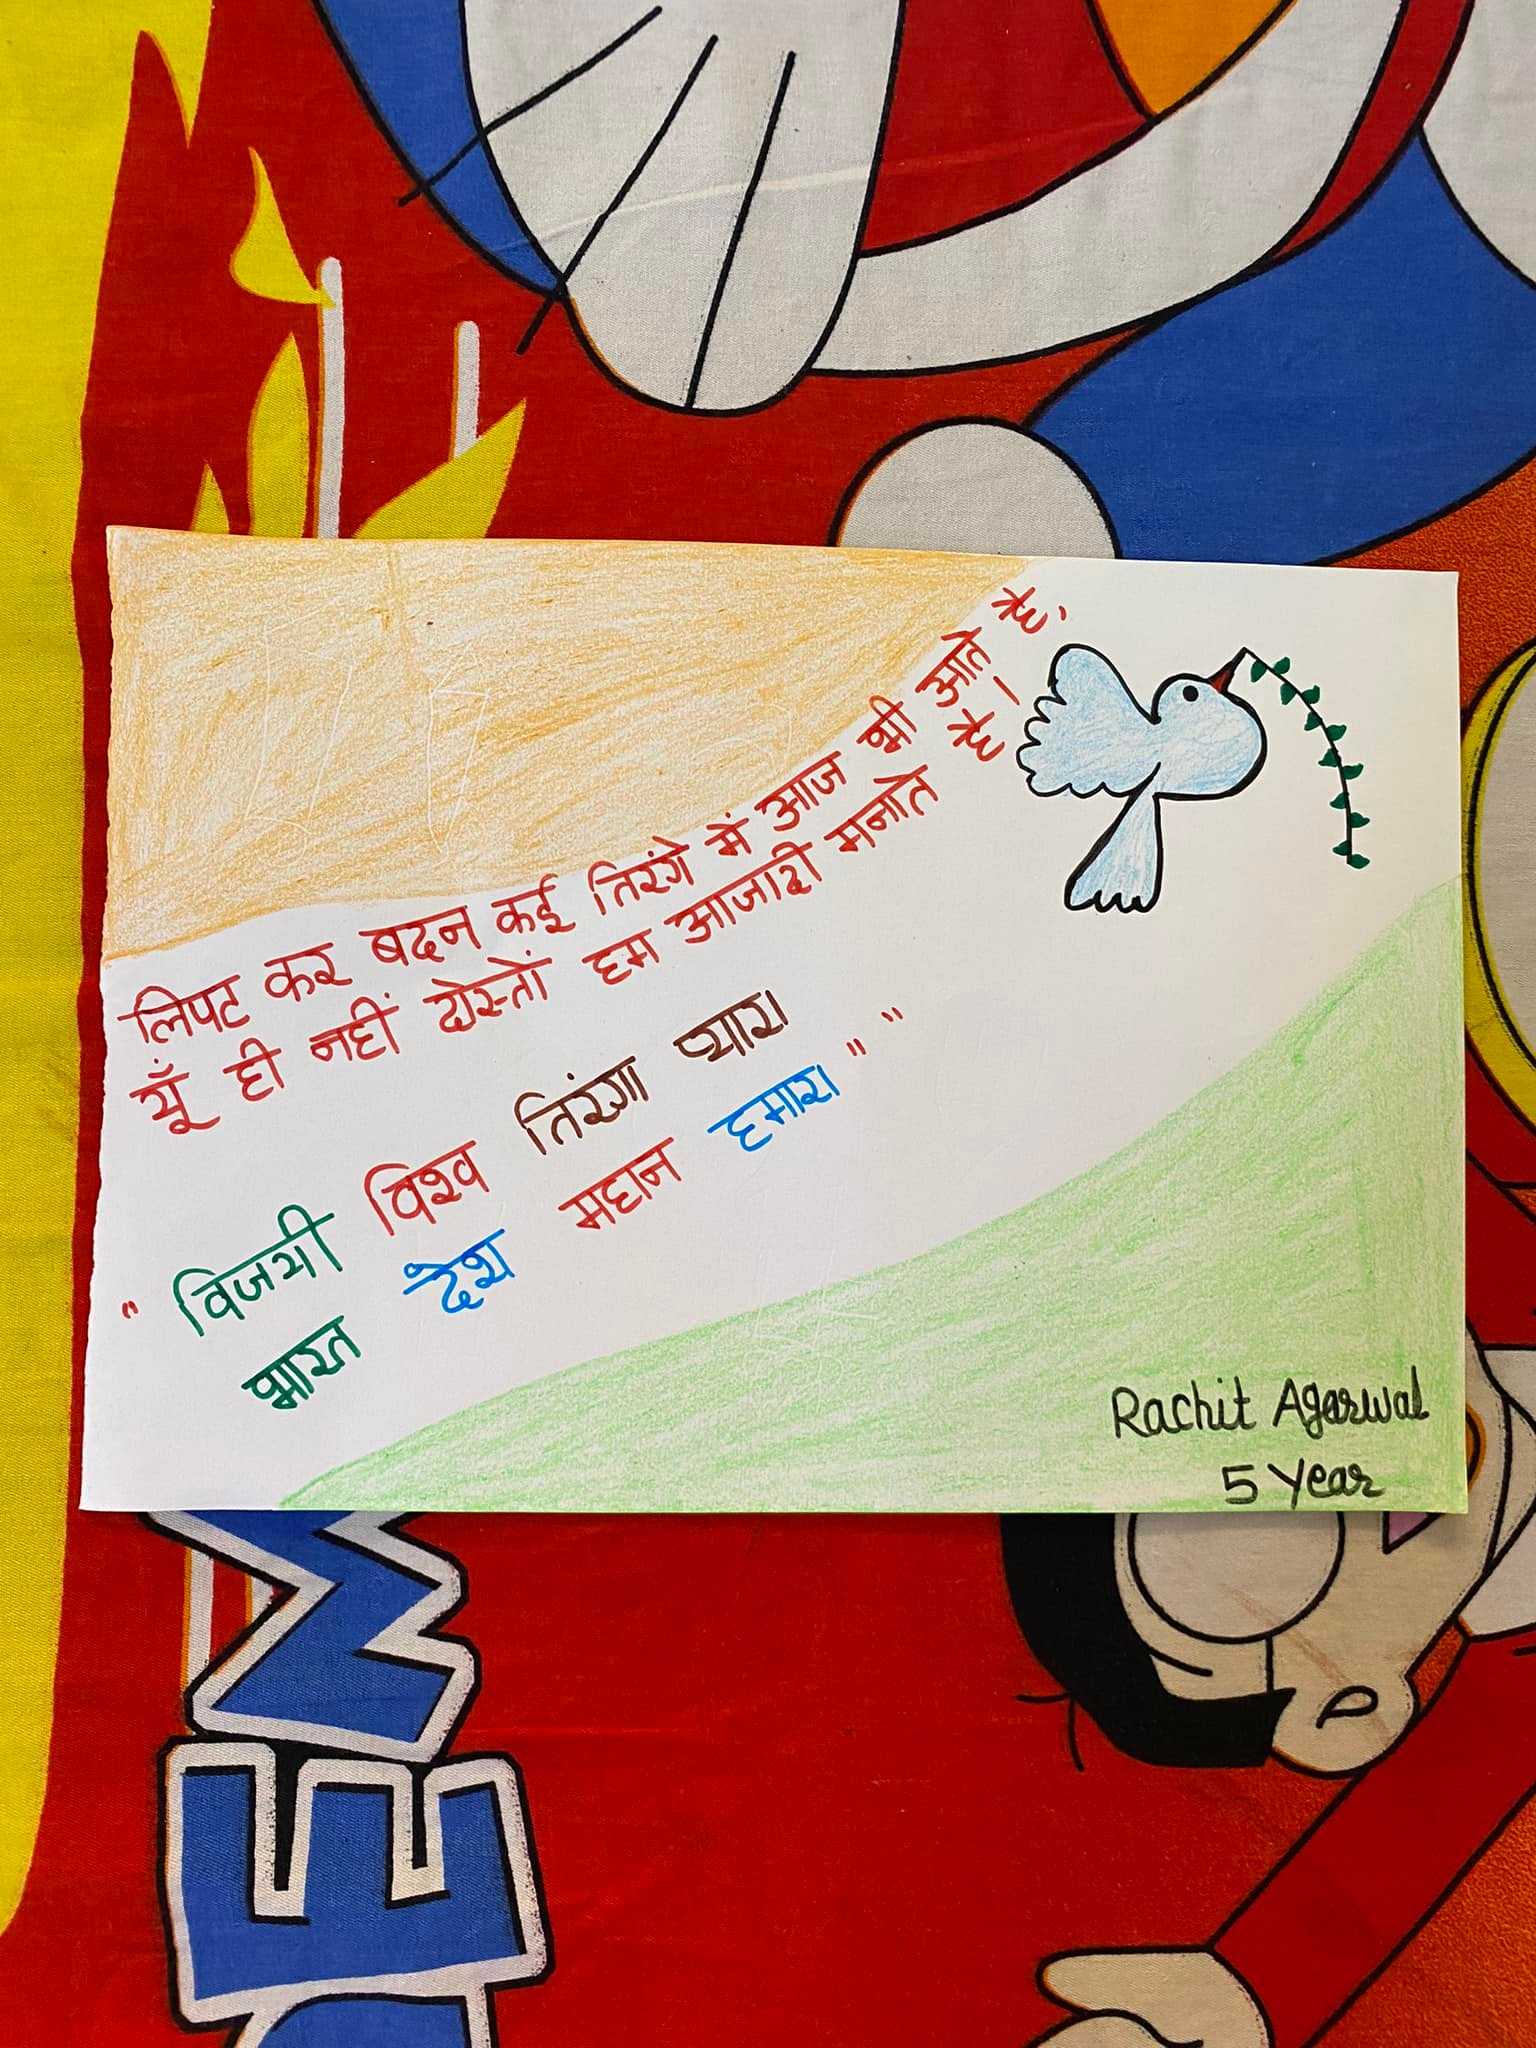 लिपट कर बदन कई तिरंगे में आज भी आते हैं
यूँ ही नहीं दोस्तों हम आजादी मनाते हैं।
" विजयी विश्व तिरंगा प्यारा
भारत देश महान हमारा " "
Rachit Agarwal
5 Year